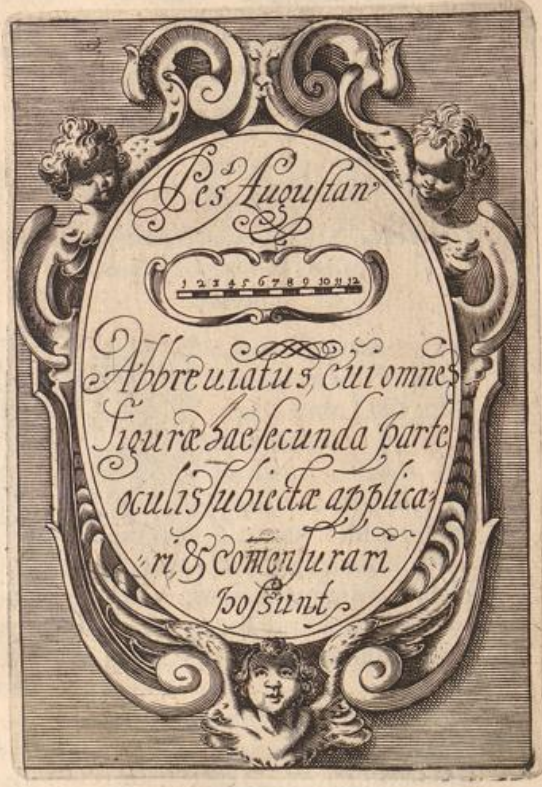 Pes Augustan⁹
1 2 3 4 5 6 7 8 9 10 11 12
Abbreuiatus, cui omnes
figuræ hac secunda parte
oculis subiectæ applica-
ri & com̃ensurari
possunt